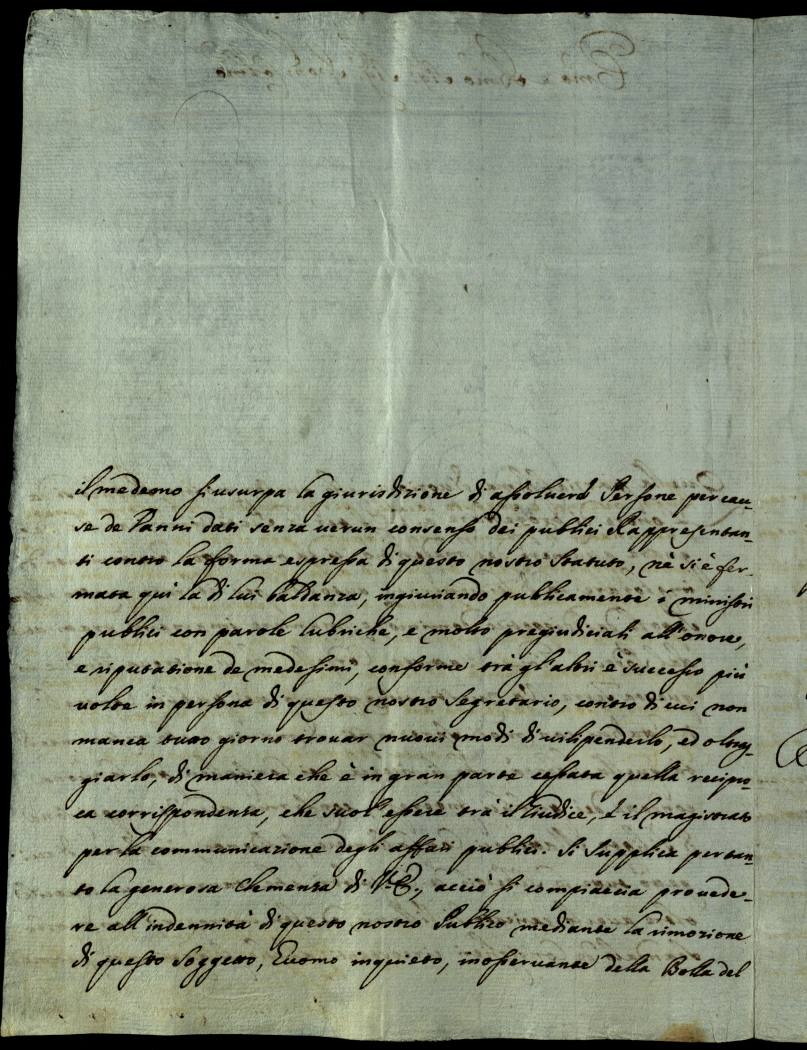 il medemo si usurpa la giurisdizione di assoluere Persone per cau-
se de Panni dati senza uerun consenso dei publici Rappresentan-
ti contro la forma espressa di questo nostro Statuto, nè si è fer-
mata qui la di lui baldanza, ingiuriando publicamente i ministri
publici con parole lubriche, e molto pregiudiciali all'onore,
e riputatione de medesimi, conforme trà gl'altri è successo più
uolte in persona di questo nostro Segretàrio, contro di cui non
manca tutto giorno trouar nuoui modi di uilipenderlo, ed oltrag-
giarlo, di maniera che è in gran parte cessata quella recipro-
ca corrispondenza, che suol'essere trà il Giudice, è il magistrato
per la communicazione degli affari publici. Si supplica pertan-
to la generosa Clemenza di V. E., acciò si compiaccia prouede-
re all'indennità di questo nostro Publico mediante la rimozione
di questo Soggetto, Euomo inquieto, inosseruante della Bolla del